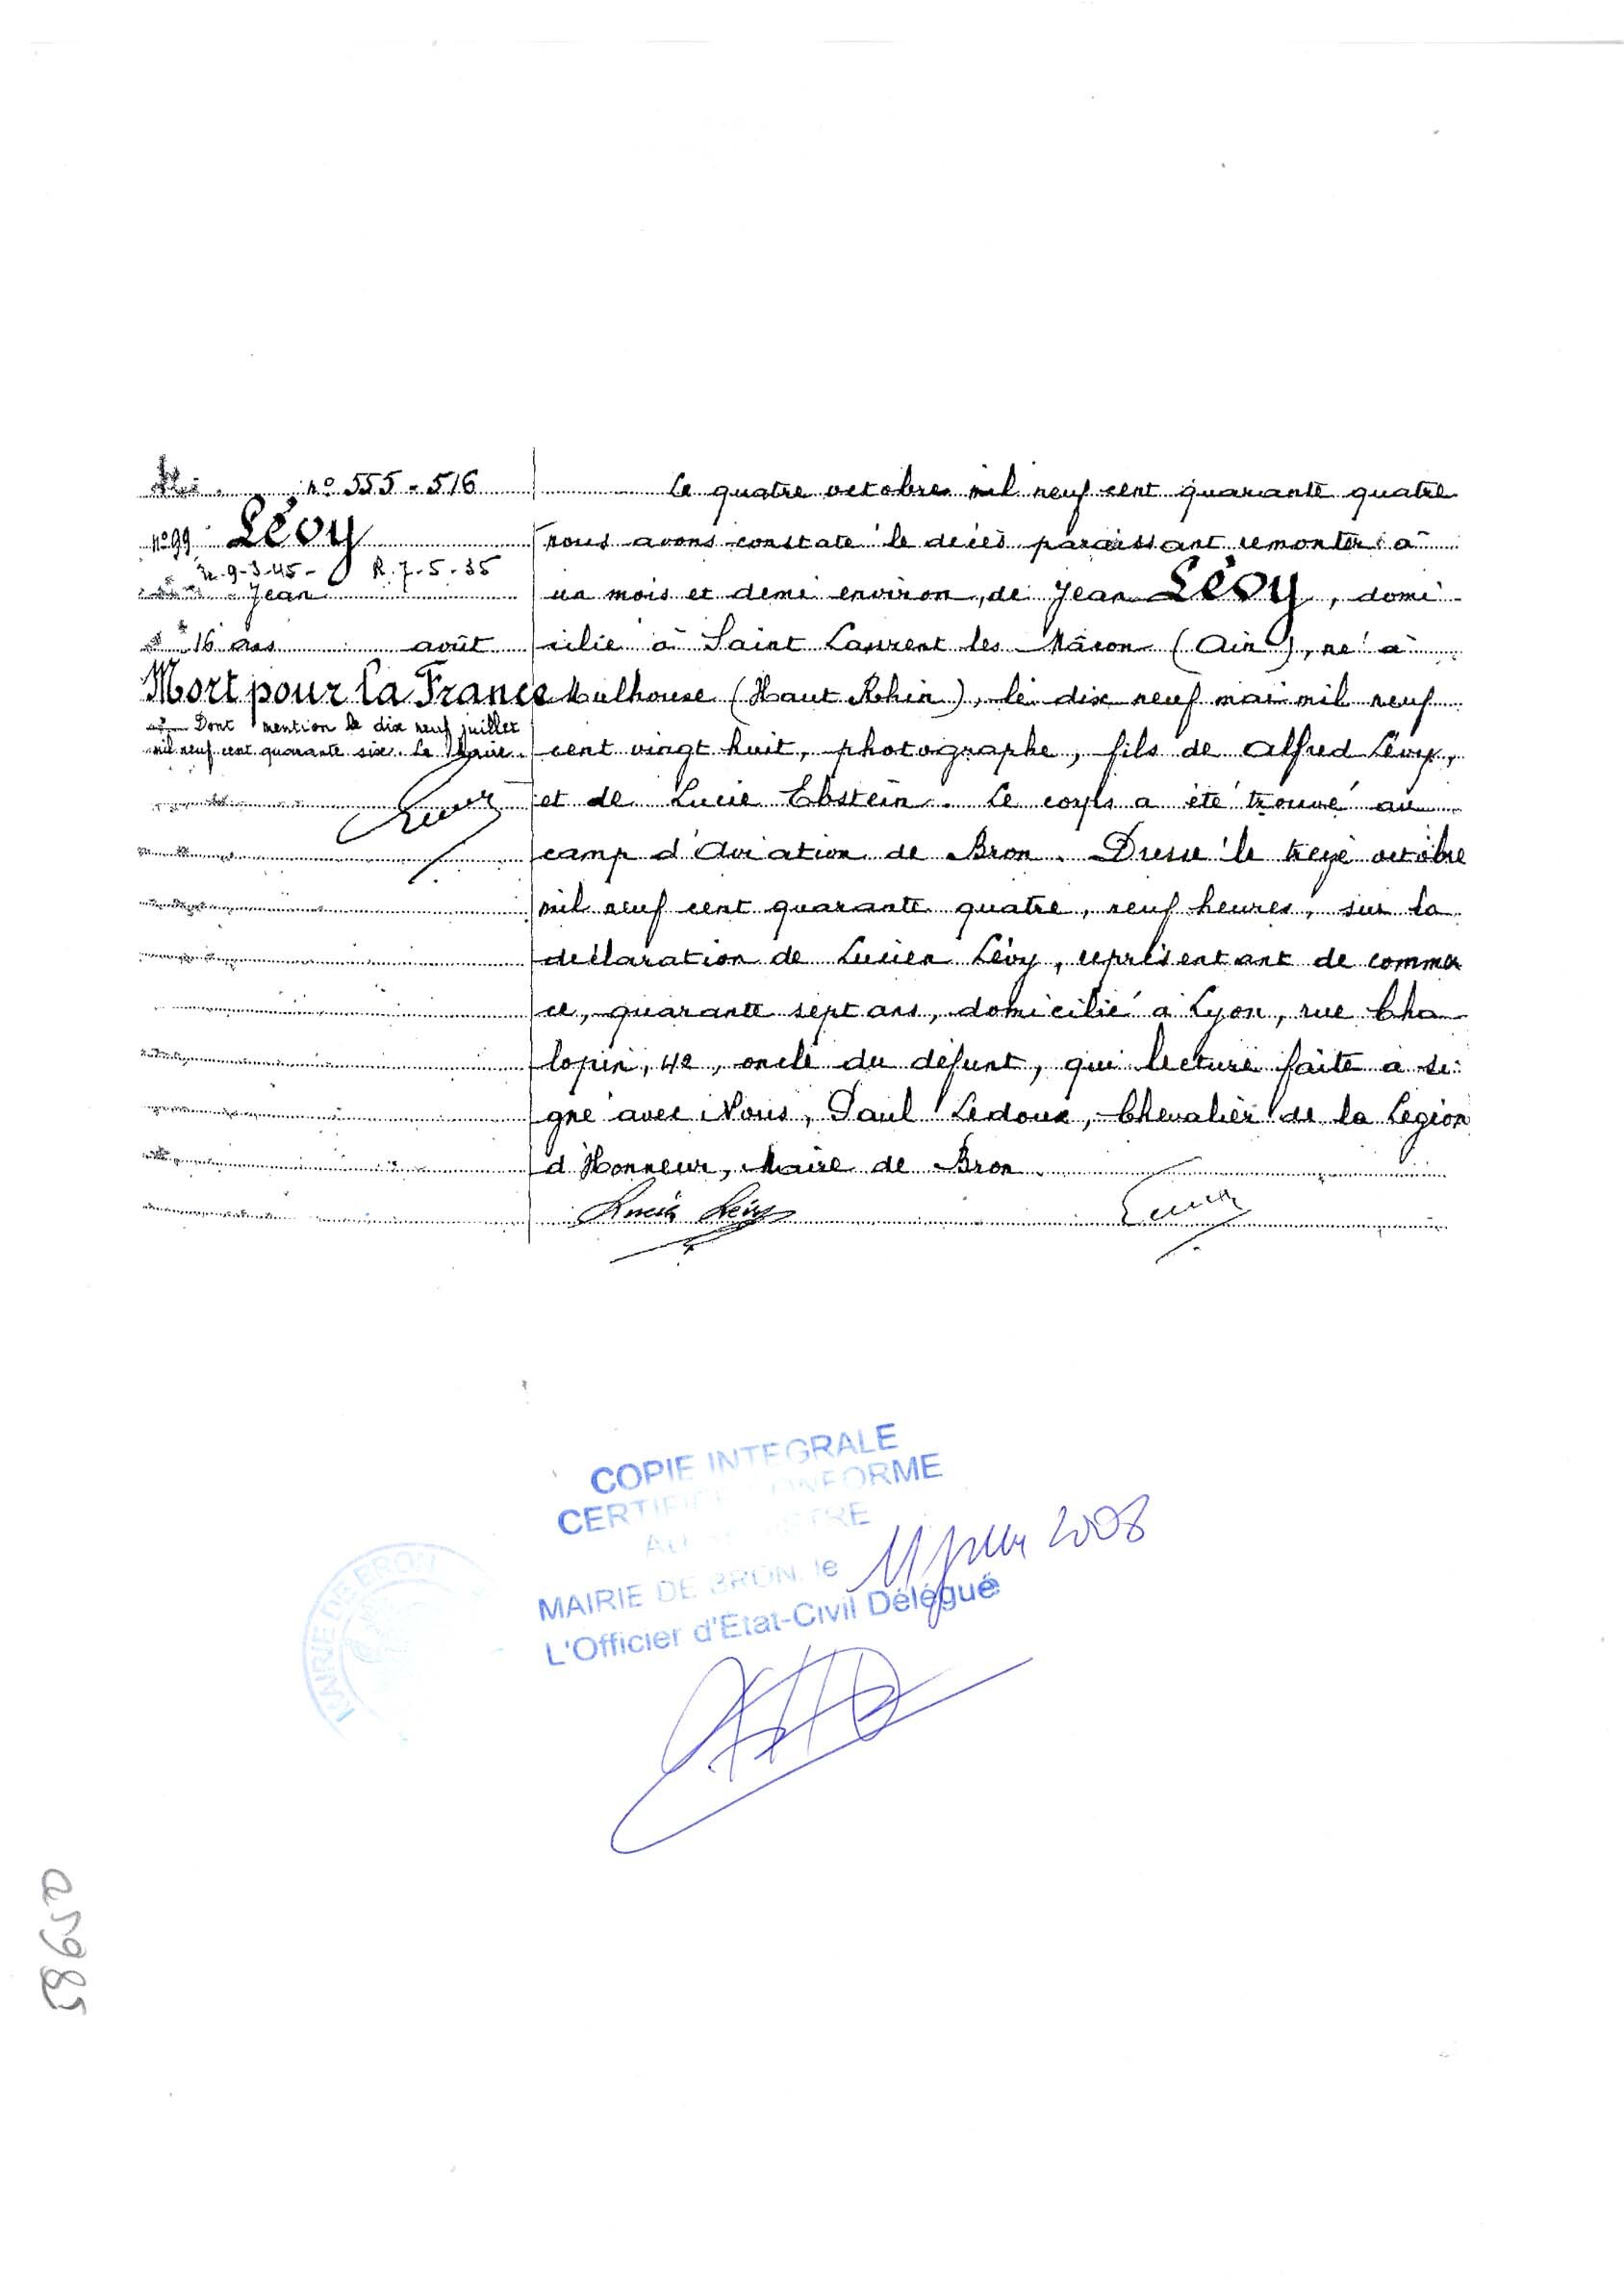 nº 555-516
nº 99 Lévy
9-3-45- R. 7-5-35
Jean
16 ans août
Mort pour la France
Dont mention le dix neuf juillet
mil neuf cent quarante six. Le Maire.
Le quatre octobre mil neuf cent quarante quatre
nous avons constaté le décès paraissant remonter à
un mois et demi environ, de Jean Lévy, domi
cilié à Saint Laurent les Mâcon (Ain), né à
Mulhouse (Haut Rhin), le dix neuf mai mil neuf
cent vingt huit, photographe, fils de Alfred Lévy,
et de Lucie Ebstein. Le corps a été trouvé au
camp d'Aviation de Bron. Dressé le treize octobre
mil neuf cent quarante quatre, neuf heures, sur la
déclaration de Lucien Lévy, représentant de commer
ce, quarante sept ans, domicilié à Lyon, rue Cha
lopin, 42, oncle du défunt, qui lecture faite a si
gné avec Nous, Paul Ledoux, Chevalier de la Légion
d'Honneur, Maire de Bron.
Lucien Lévy
COPIE INTEGRALE
CERTIFIEE CONFORME
AU REGISTRE
MAIRIE DE BRON, le 11 2008
L'Officier d'Etat-Civil Délégué
MAIRIE DE BRON